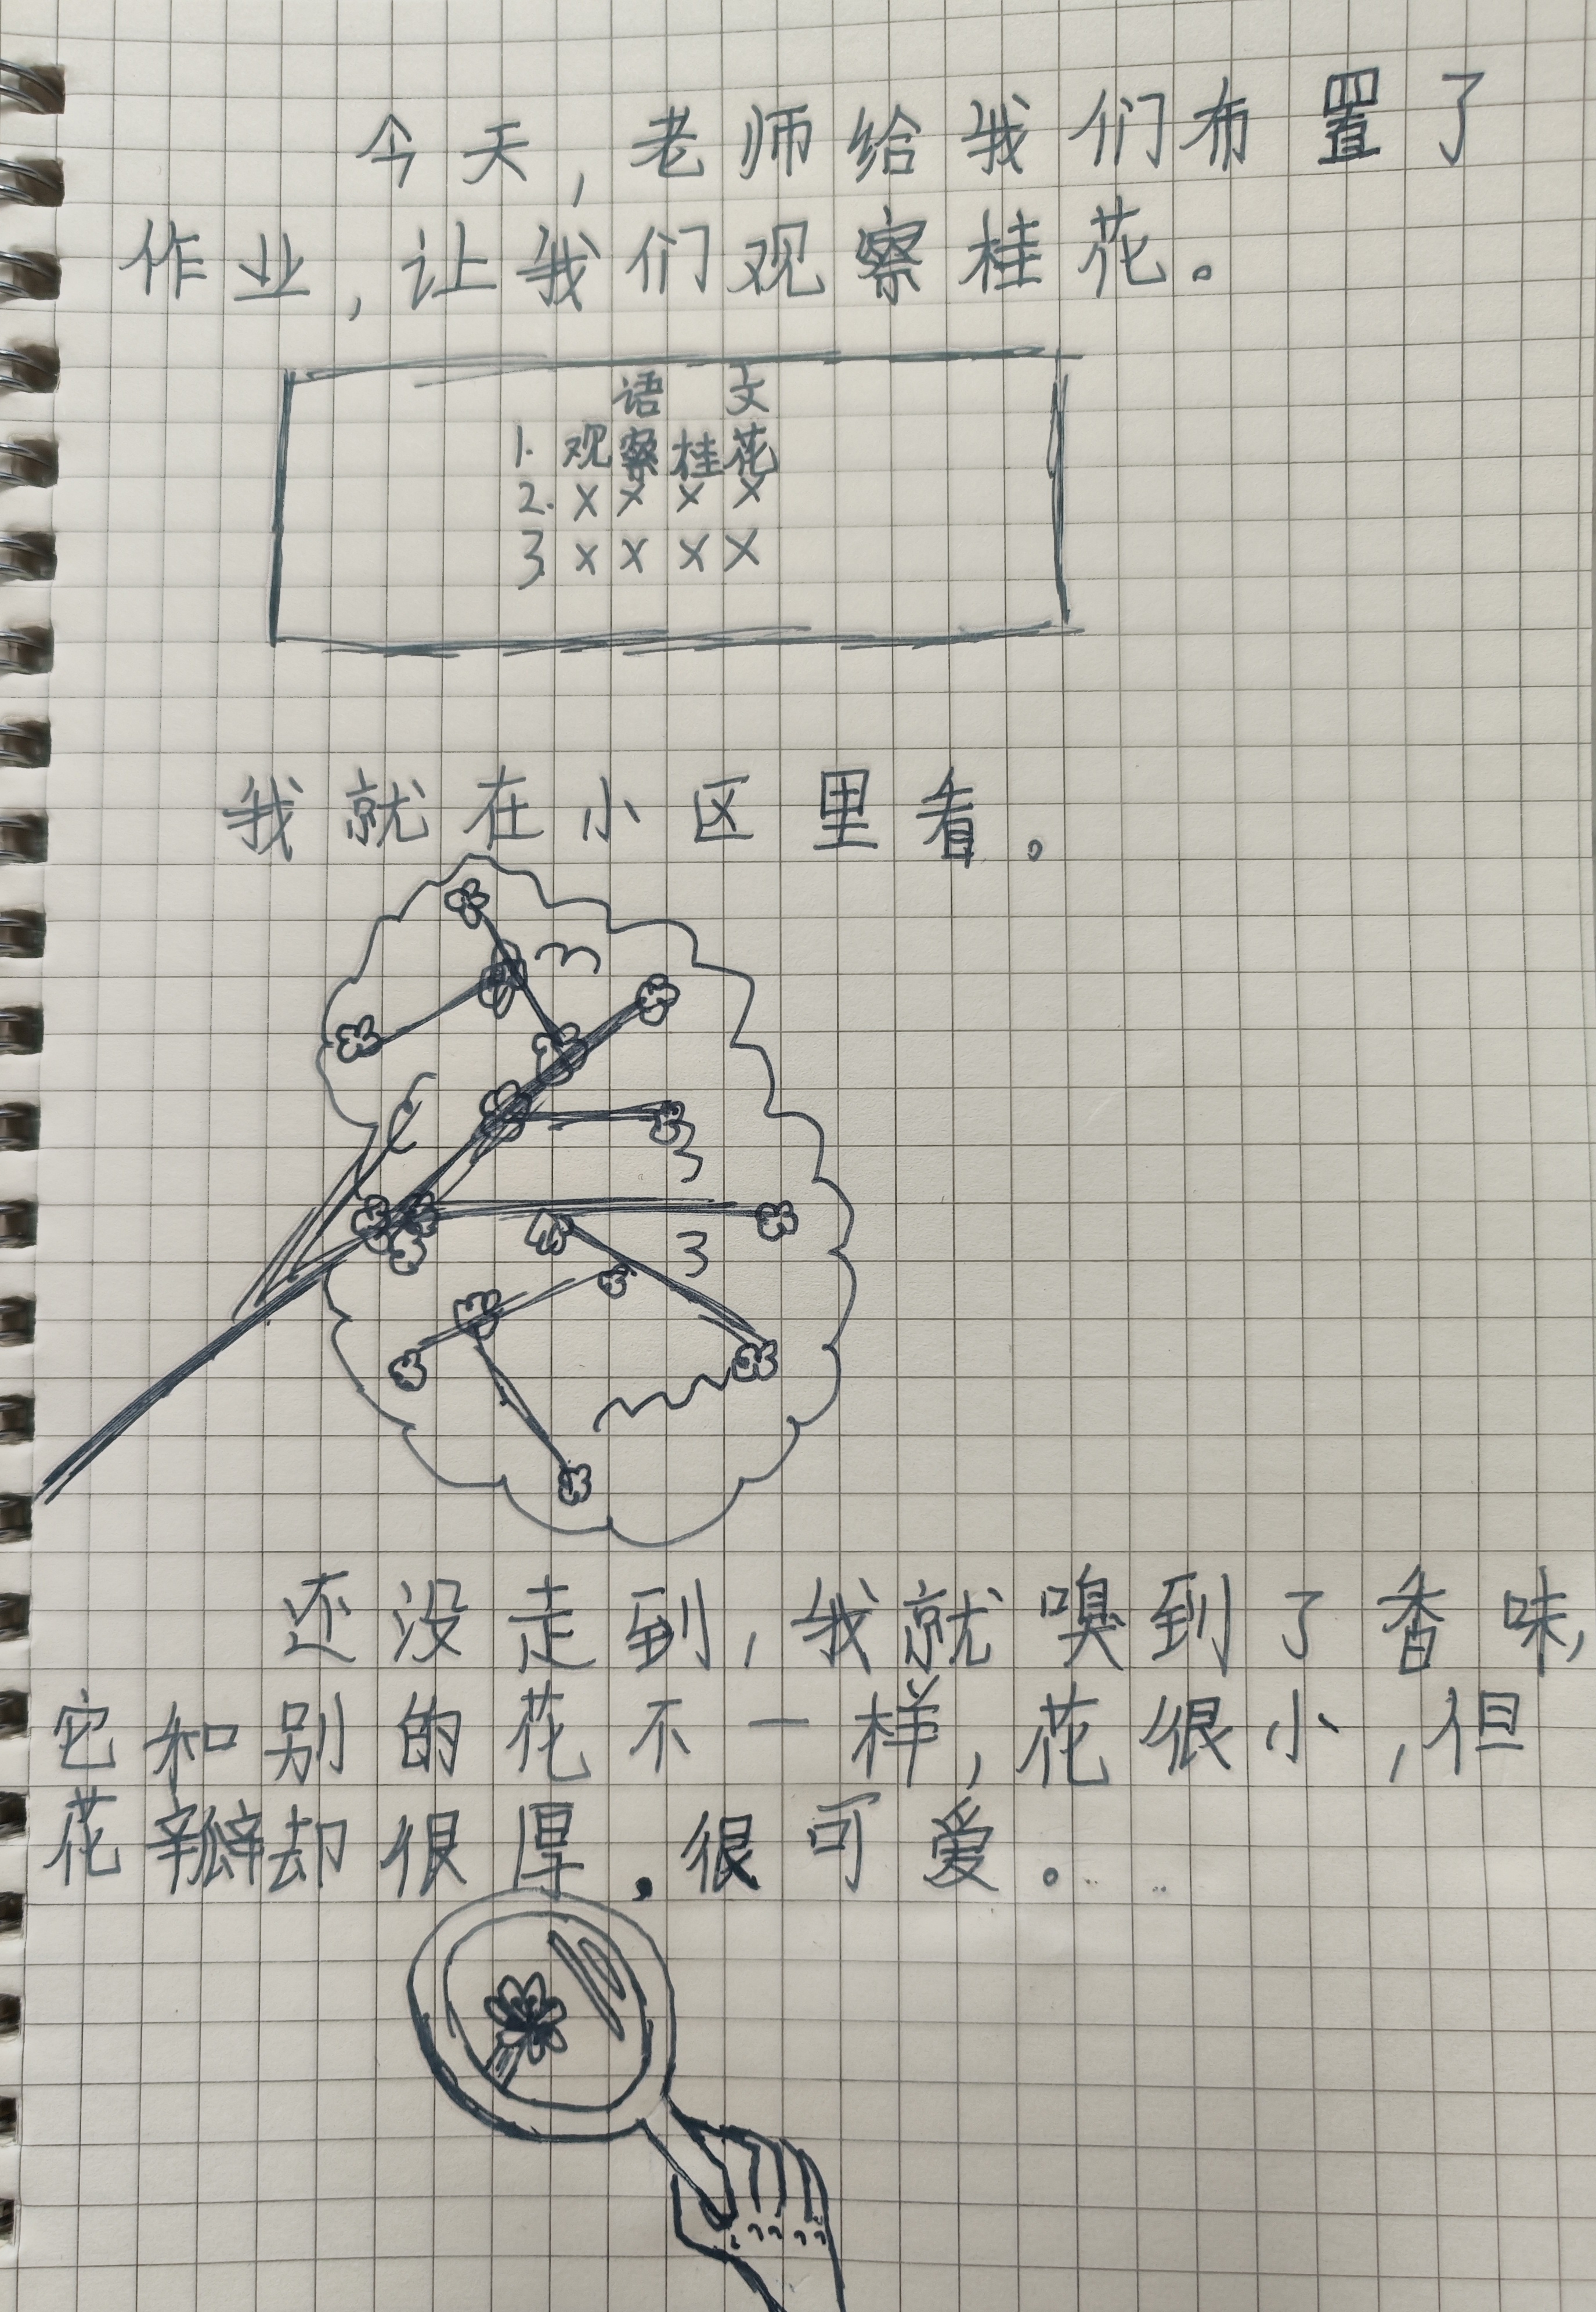 今天,老师给我们布置了
作业,让我们观察桂花。
语文
1.观察桂花
2.××××
3.××××
我就在小区里看。
还没走到,我就嗅到了香味,
它和别的花不一样,花很小,但
花瓣却很厚,很可爱。